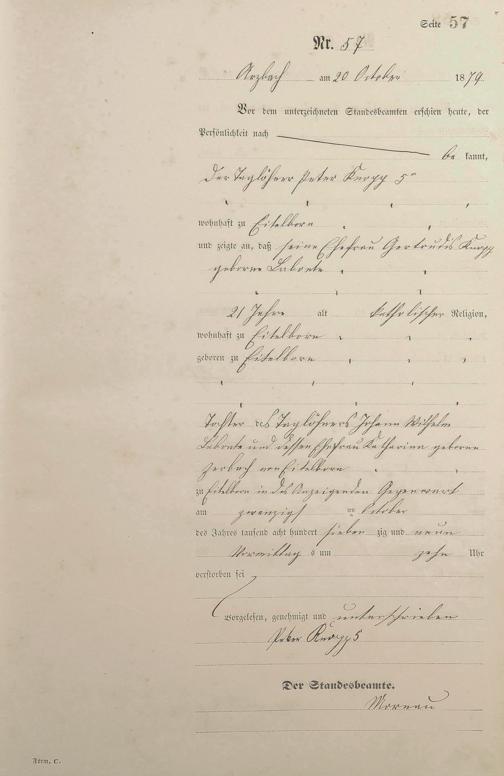 Seite 57
Nr. 57
Arzbach am 20 October 1879
Vor dem unterzeichneten Standesbeamten erschien heute, der
Persönlichkeit nach
be kannt,
der Taglöhner Peter Knopp 5r
wohnhaft zu Eitelborn
und zeigte an, daß seine Ehefrau Gertrudis Knopp
geborne Labonte
21 Jahre alt katholischer Religion,
wohnhaft zu Eitelborn
geboren zu Eitelborn
Tochter des Taglöhners Johann Wilhelm
Labonte und dessen Ehefrau Katharina geborene
Zerbach von Eitelborn
zu Eitelborn in des Anzeigenden Gegenwart
am zwanzigsten October
des Jahres tausend acht hundert sieben zig und neun
Vormittag s um zehn Uhr
verstorben sei
Vorgelesen, genehmigt und unterschrieben
Peter Knopp 5
Der Standesbeamte.
Form. C.